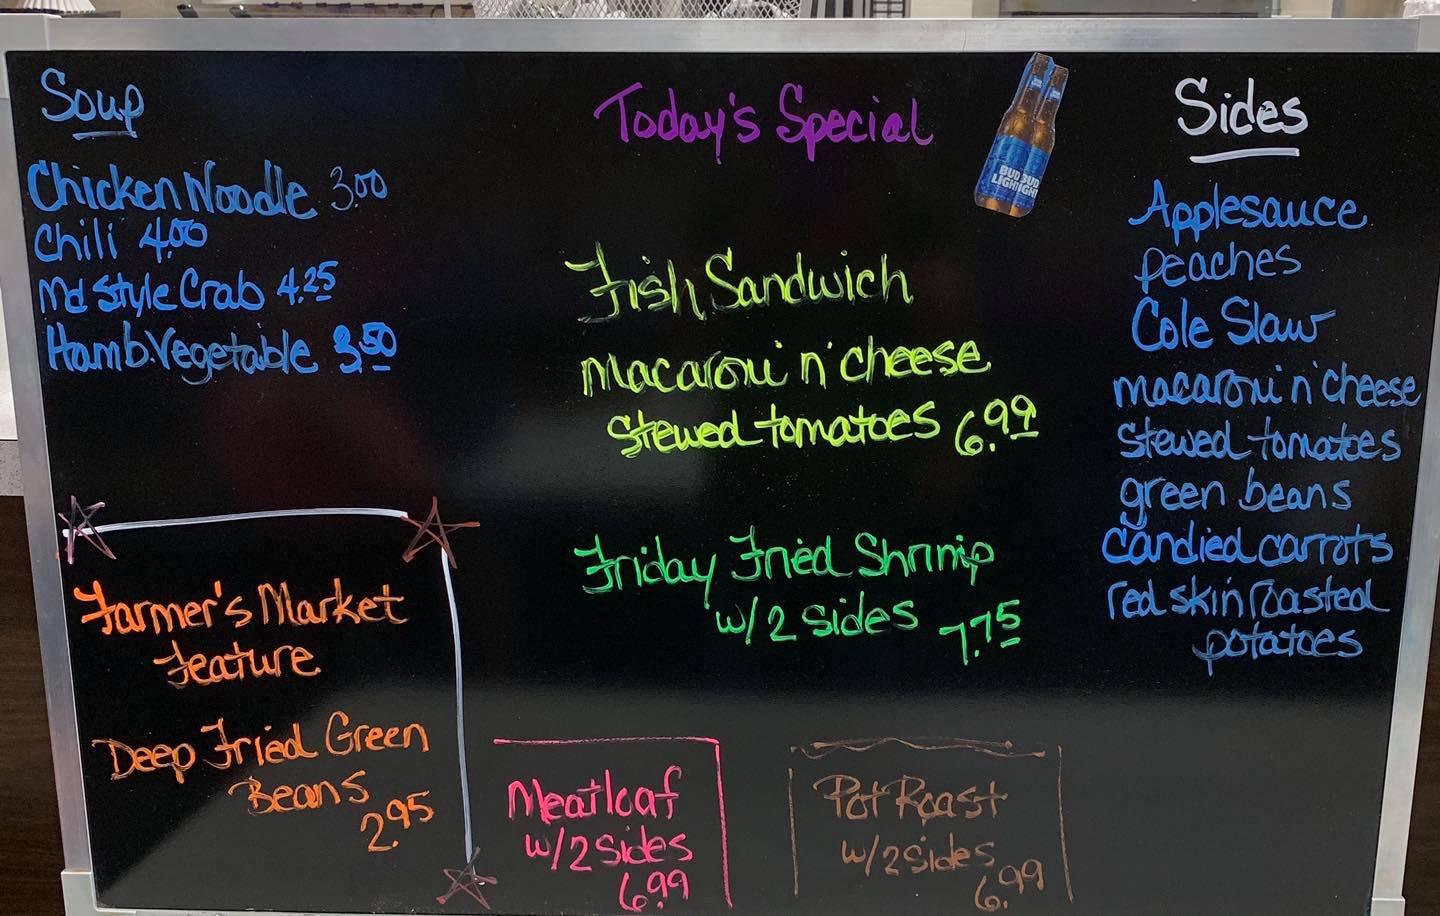 Soup
Chicken Noodle 3.00
Chili 4.00
Md Style Crab 4.25
Hamb. Vegetable 3.50
Farmer's Market
Feature
Deep Fried Green
Beans
2.95
Today's Special
BUD BUD
LIGHT LIGHT
Fish Sandwich
macaroni n' cheese
stewed tomatoes 6.99
Friday Fried Shrimp
w/ 2 sides 7.75
Meatloaf
w/2 sides
6.99
Pot Roast
w/2 sides
6.99
Sides
Applesauce
peaches
Cole Slaw
macaroni n' cheese
stewed tomatoes
green beans
candied carrots
red skin roasted
potatoes